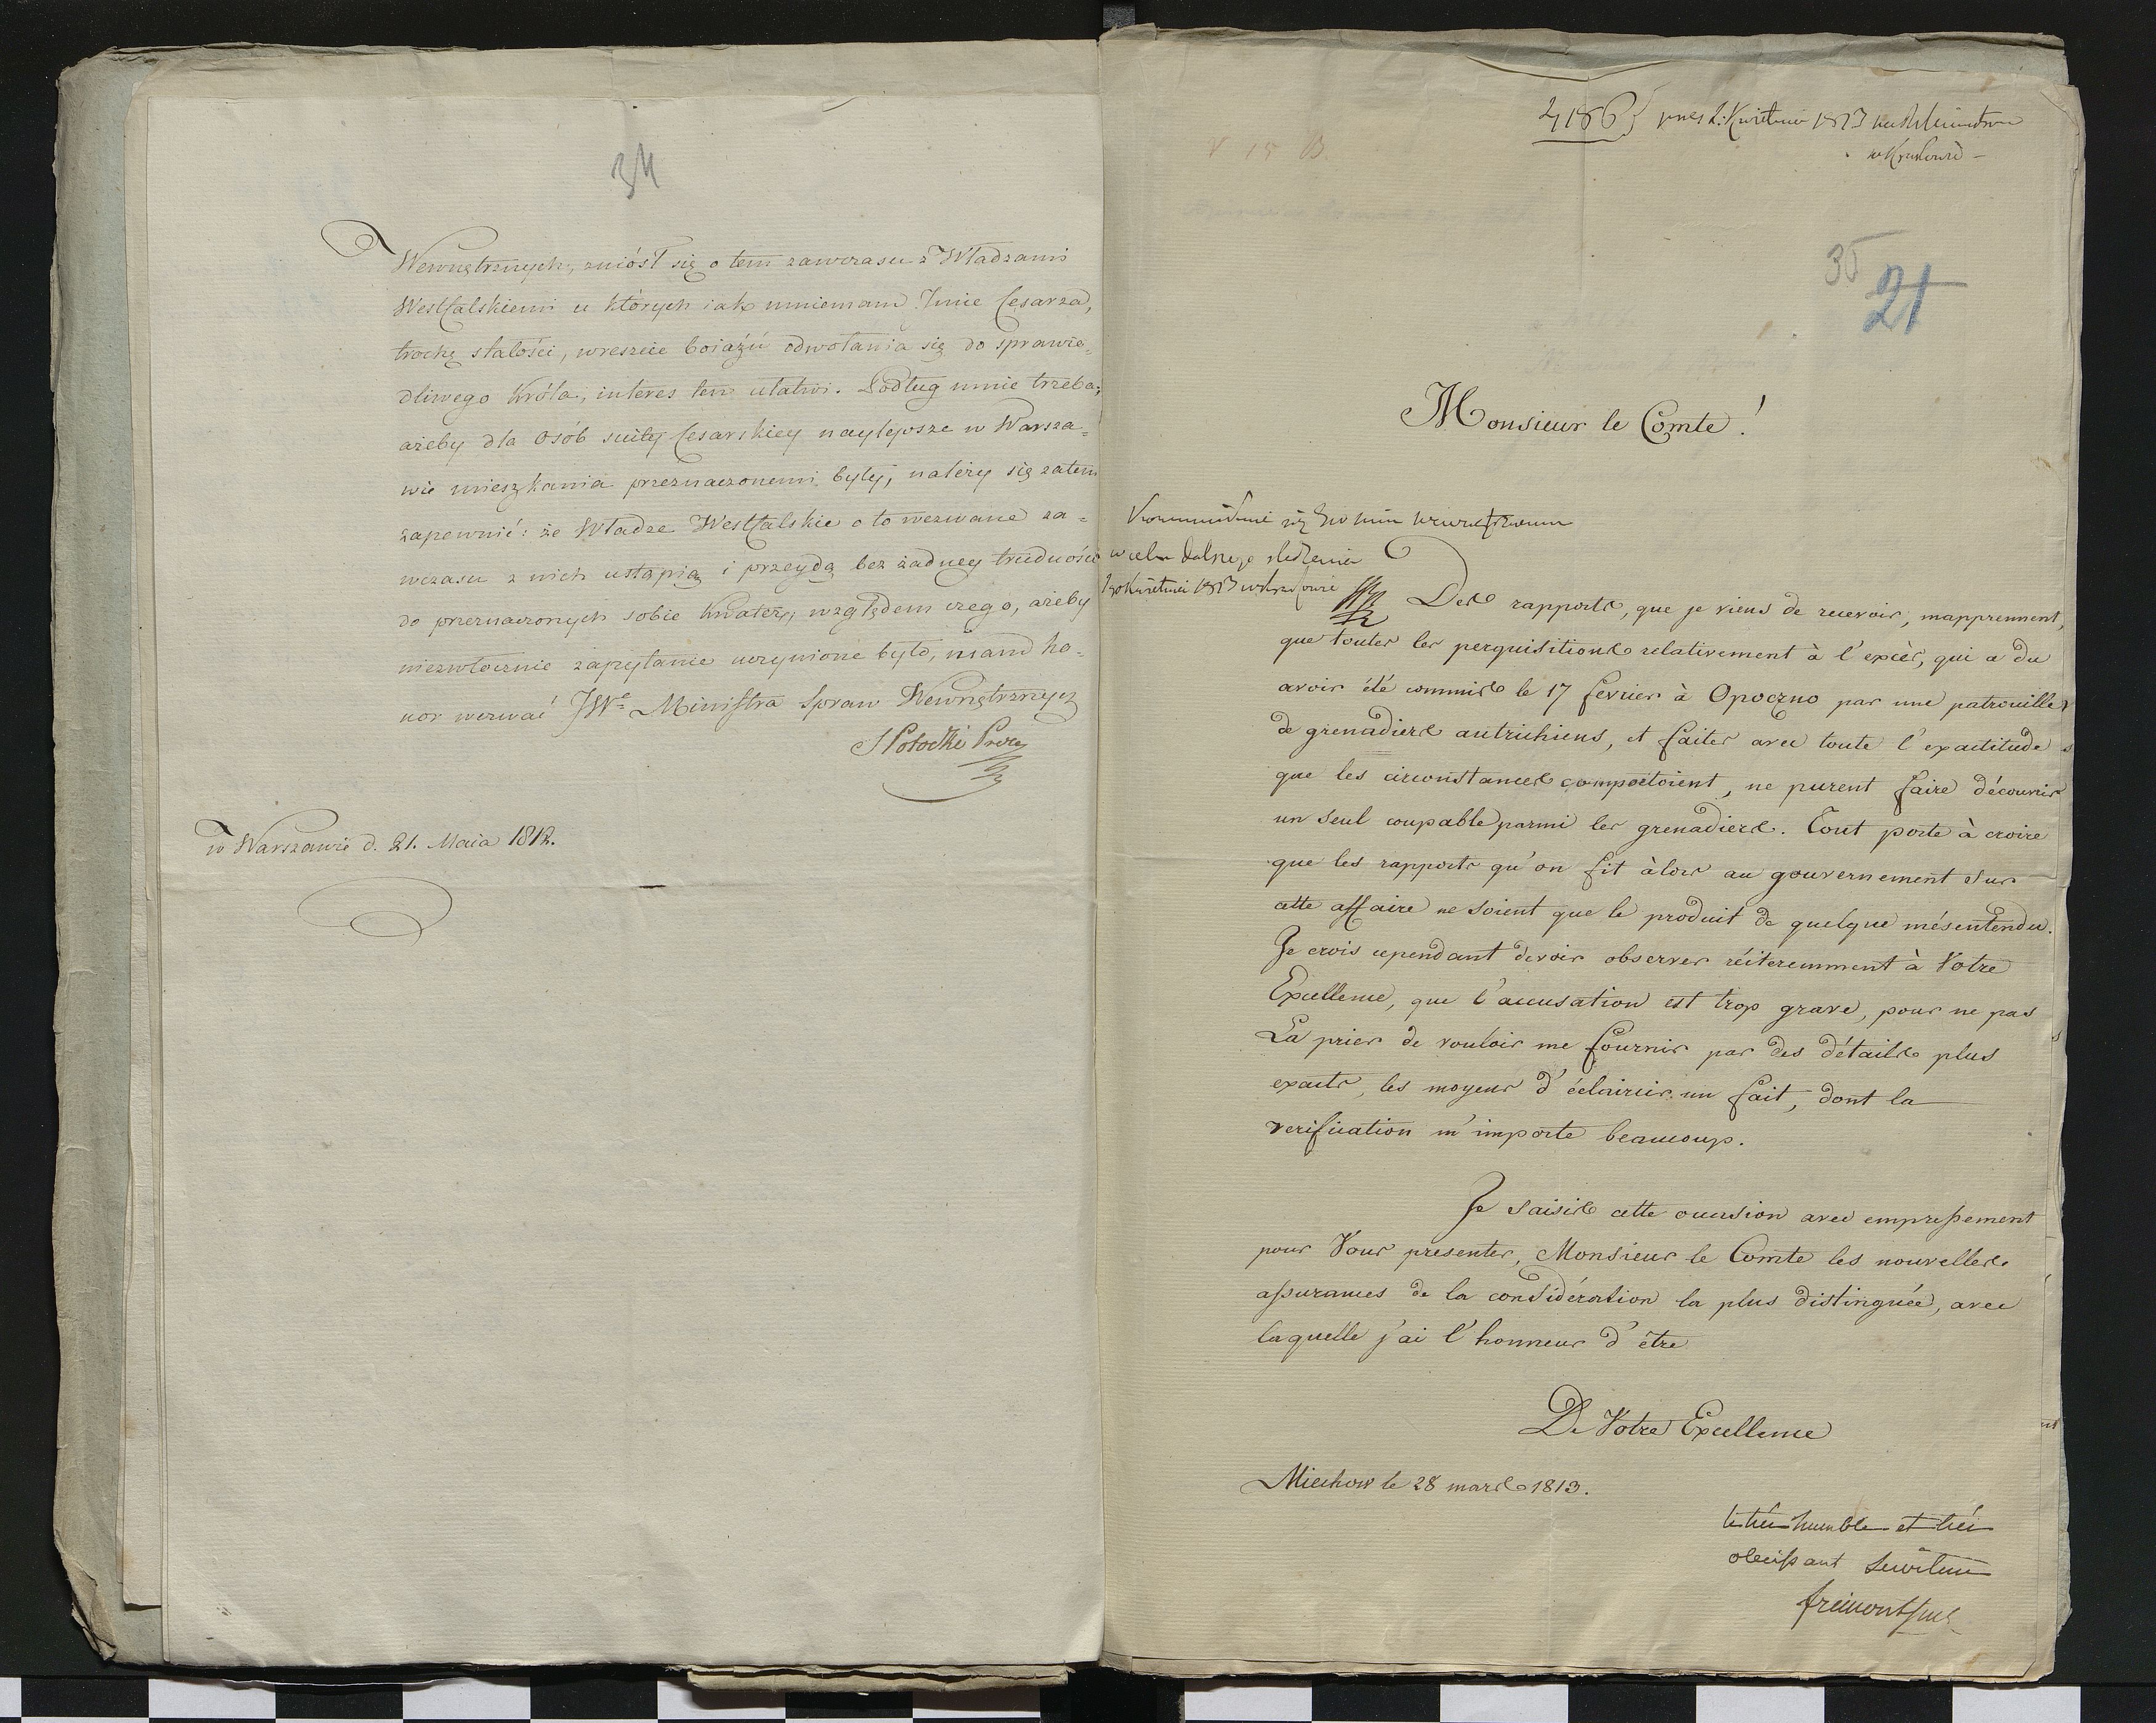 34
Wewnętrznych, zniósł się o tem zawczasu z Władzami
Westfalskiemi u których iak mniemam Imie Cesarza,
trochę stałości, wreszcie boiaźń odwołania się do sprawie=
dliwego Króla, interes ten ułatwi. Podług mnie trzeba,
ażeby dla Osób suity Cesarskiey naylepsze w Warsza=
wie mieszkania przeznaczonemi były, należy się zatem
zapewnić: że Władze Westfalskie o to wezwane za=
wczasu z nich ustąpią i przeydą bez żadney trudności
do przeznaczonych sobie kwater, względem czego, ażeby
niezwłocznie zapytanie uczynione było, mam ho=
nor wezwać JWo Ministra Spraw Wewnętrznych
S Potocki Prezes
w Warszawie d. 21. Maia 1812.
Kwietnia 1813
w Krakowie
35
21
Monsieur le Comte!
w celu dalszego śledzenia
Kwietnia 1813 w Krakowie
Des rapports, que je viens de recevoir, m'apprennent,
que toutes les perquisitions relativement à l'excès, qui a du
avoir été commis le 17 fevrier à Opoczno par une patrouille
de grenadiers autrichiens, et faites avec toute l'exactitude
que les circonstances comportoient, ne purent faire découvrir
un seul coupable parmi les grenadiers. Tout porte à croire
que les rapports qu'on fit àlors au gouvernement sur
cette affaire ne soient que le produit de quelque mésentendu.
Je crois cependant devoir observer réiteremment à Votre
Excellence, que l'accusation est trop grave, pour ne pas
La prier de vouloir me fournir par des détails plus
exacts, les moyens d'éclaircir un fait, dont la
verification m'importe beaucoup.
Je saisis cette occasion avec empressement
pour Vous presenter, Monsieur le Comte les nouvelles
assurances de la considération la plus distinguée, avec
laquelle j'ai l'honneur d'être
De Votre Excellence
Miechow le 28 mars 1813.
le très humble et très
obeissant serviteur
Frimont